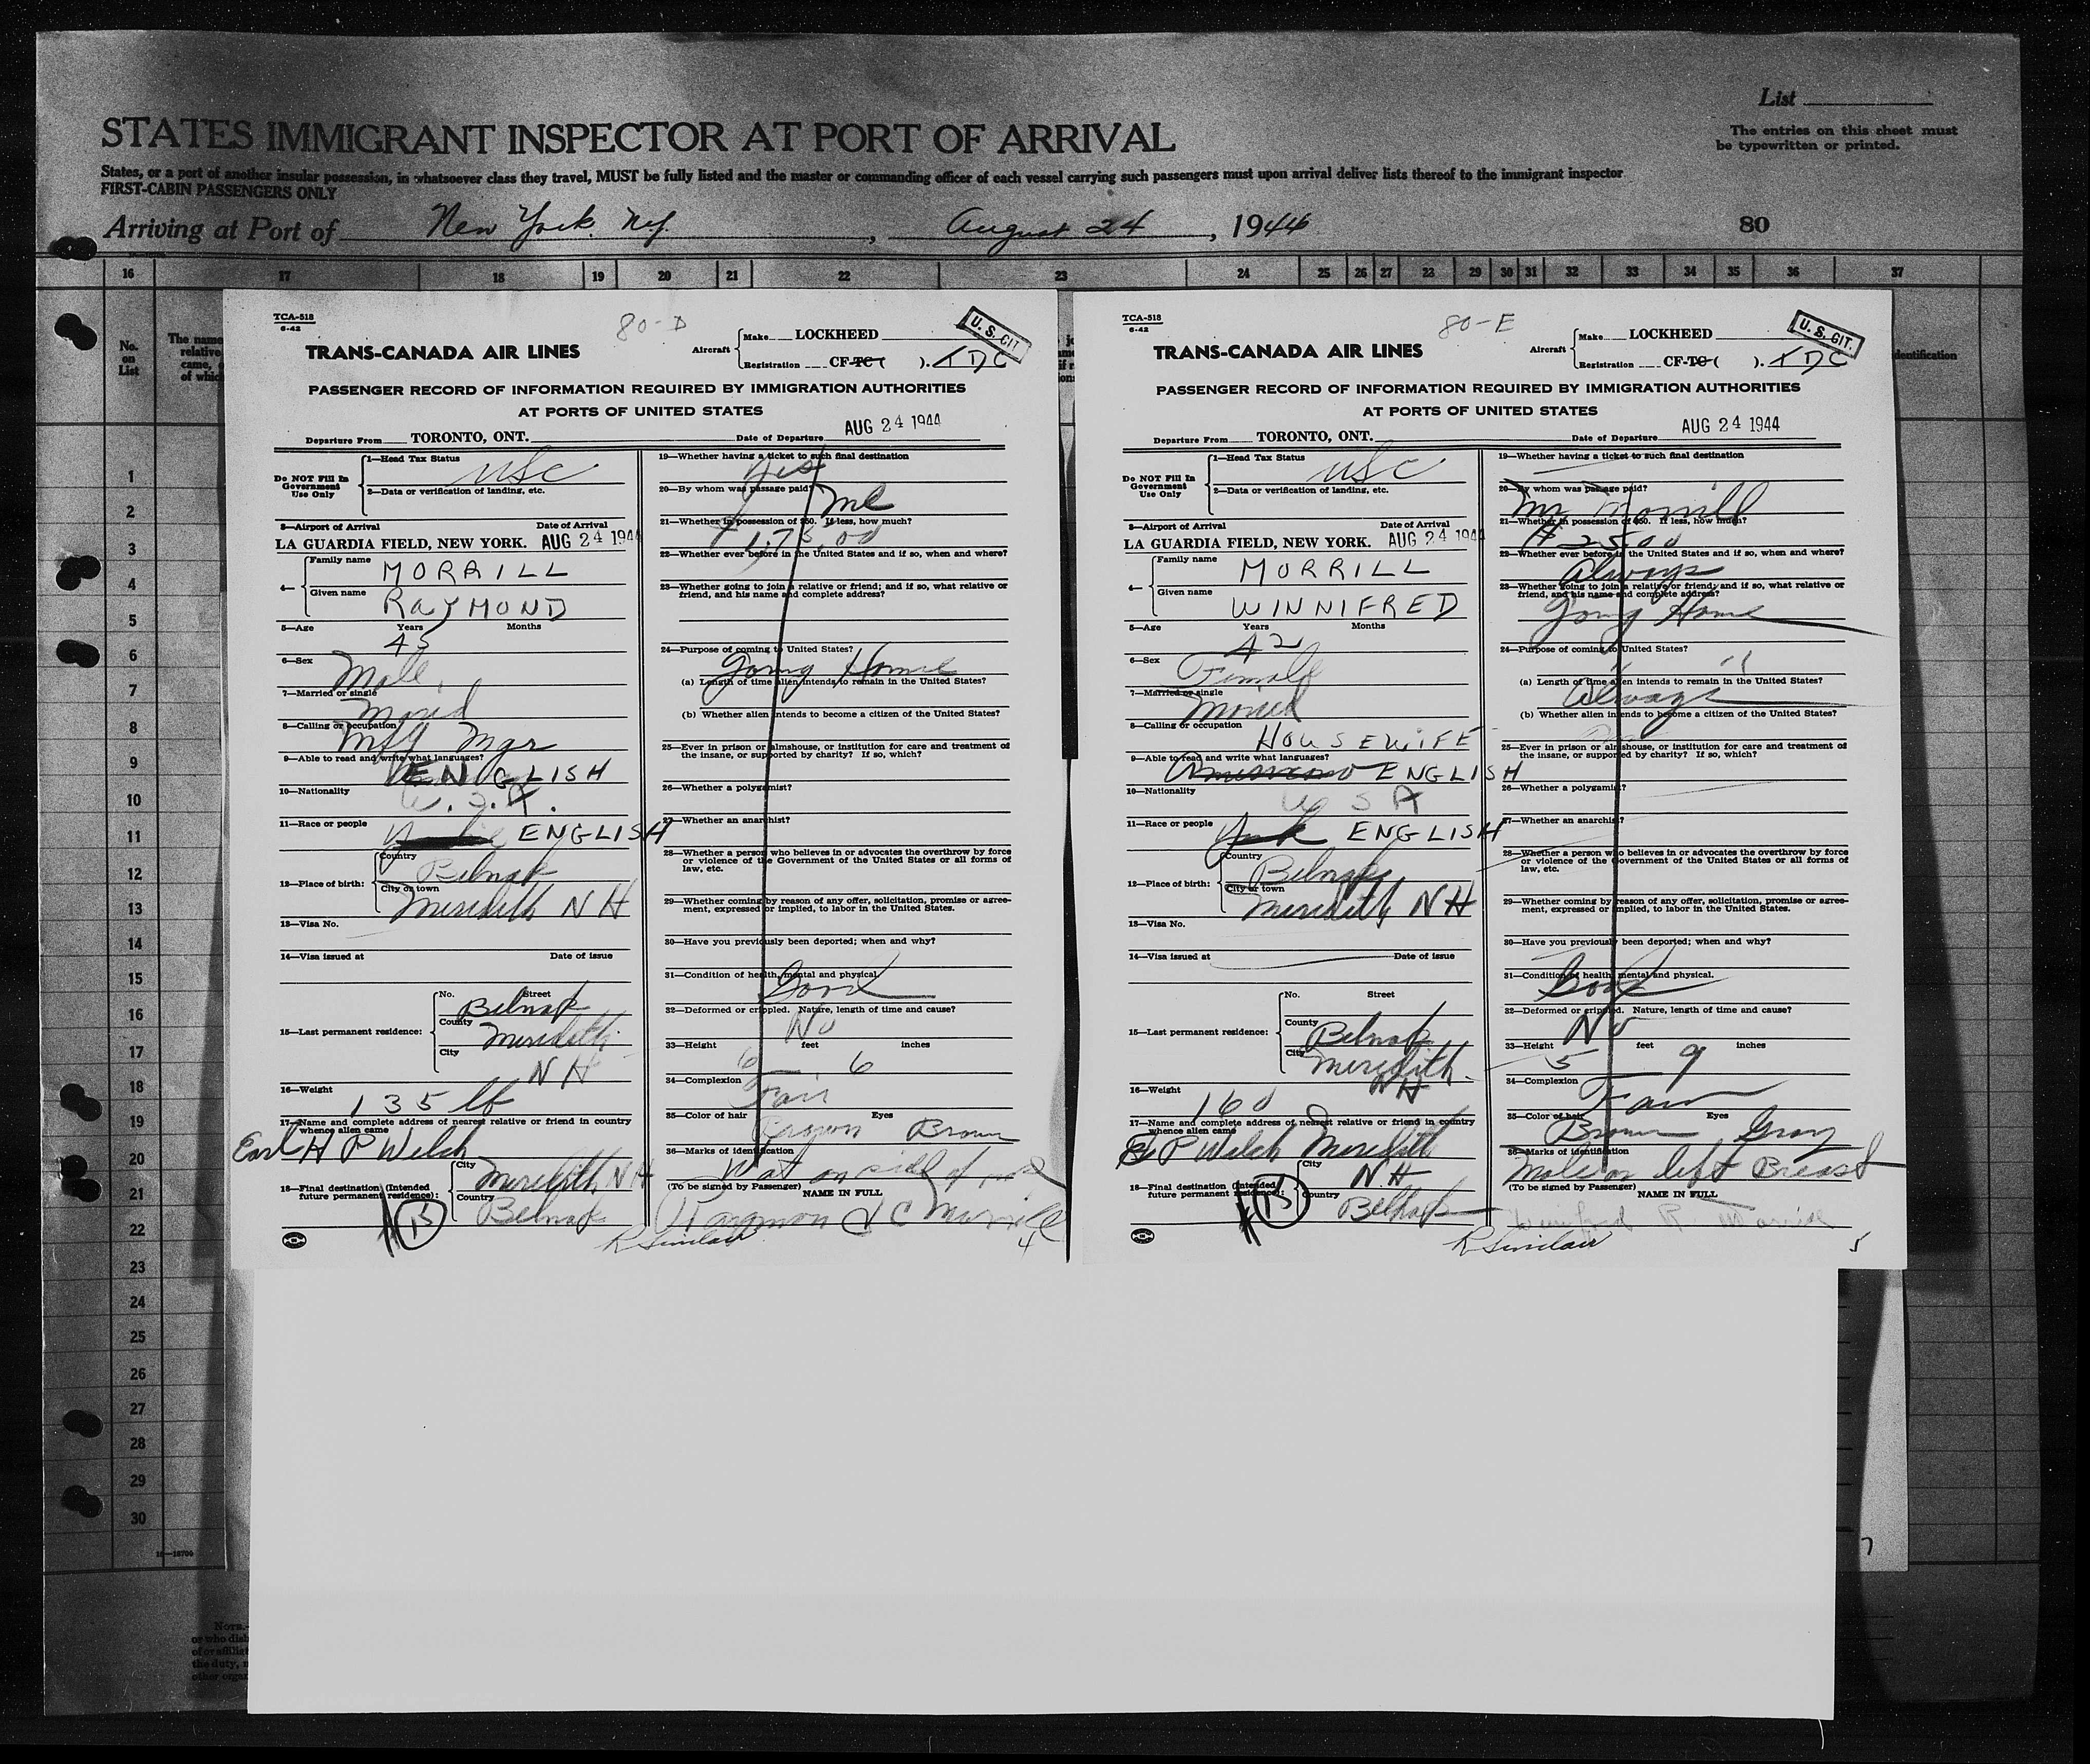 List
The entries on this sheet must
be typewritten or printed.
STATES IMMIGRANT INSPECTOR AT PORT OF ARRIVAL
States, or a port of another insular possession, in whatsoever class they travel, MUST be fully listed and the master or commanding officer of each vessel carrying such passengers must upon arrival deliver lists thereof to the immigrant inspector
FIRST-CABIN PASSENGERS ONLY
Arriving at Port of New York. N.Y. , August 24 , 1944 80
16 17 18 19 20 21 22 23 24 25 26 27 28 29 30 31 32 33 34 35 36 37
No.
on
List
The name
relative
came,
of whic
1
2
3
4
5
6
7
8
9
10
11
12
13
14
15
16
17
18
19
20
21
22
23
24
25
26
27
28
29
30
TCA-518
6-42
80-D
U. S. CIT.
TRANS-CANADA AIR LINES
Aircraft
Make LOCKHEED
Registration CF-TC ( ). TDC
PASSENGER RECORD OF INFORMATION REQUIRED BY IMMIGRATION AUTHORITIES
AT PORTS OF UNITED STATES
Departure From TORONTO, ONT. Date of Departure AUG 24 1944
Do NOT Fill In
Government
Use Only
1—Head Tax Status
USC
2—Data or verification of landing, etc.
3—Airport of Arrival Date of Arrival
LA GUARDIA FIELD, NEW YORK. AUG 24 1944
4— Family name MORRILL
Given name RAYMOND
5—Age Years Months
43
6—Sex
Male
7—Married or single
Maried
8—Calling or occupation
Mfg Mgr
9—Able to read and write what languages?
ENGLISH
10—Nationality
U.S.A.
11—Race or people ENGLISH
12—Place of birth: Country
Belnap
City or town
Meredith N H
13—Visa No.
14—Visa issued at Date of issue
15—Last permanent residence: No. Street
Belnap
County
Meredith
City
N H
16—Weight
135 lb
17—Name and complete address of nearest relative or friend in country
whence alien came
Earl H P Welch
18—Final destination (Intended
future permanent residence):
City
Meredith N H
Country
Belnap
19—Whether having a ticket to such final destination
Yes
20—By whom was passage paid?
Me
21—Whether in possession of $50. If less, how much?
175.00
22—Whether ever before in the United States and if so, when and where?
23—Whether going to join a relative or friend; and if so, what relative or
friend, and his name and complete address?
24—Purpose of coming to United States?
Going Home
(a) Length of time alien intends to remain in the United States?
(b) Whether alien intends to become a citizen of the United States?
25—Ever in prison or almshouse, or institution for care and treatment of
the insane, or supported by charity? If so, which?
26—Whether a polygamist?
27—Whether an anarchist?
28—Whether a person who believes in or advocates the overthrow by force
or violence of the Government of the United States or all forms of
law, etc.
29—Whether coming by reason of any offer, solicitation, promise or agree-
ment, expressed or implied, to labor in the United States.
30—Have you previously been deported; when and why?
31—Condition of health, mental and physical.
Good
32—Deformed or crippled. Nature, length of time and cause?
No
33—Height feet inches
6 6
34—Complexion
Fair
35—Color of hair Eyes
Brown Brown
36—Marks of identification
Wat on side of nose
(To be signed by Passenger) NAME IN FULL
R Sinclair
4
TCA-518
6-42
80-E
U. S. CIT.
TRANS-CANADA AIR LINES
Aircraft
Make LOCKHEED
Registration CF-TC ( ). TDC
PASSENGER RECORD OF INFORMATION REQUIRED BY IMMIGRATION AUTHORITIES
AT PORTS OF UNITED STATES
Departure From TORONTO, ONT. Date of Departure AUG 24 1944
Do NOT Fill In
Government
Use Only
1—Head Tax Status
USC
2—Data or verification of landing, etc.
3—Airport of Arrival Date of Arrival
LA GUARDIA FIELD, NEW YORK. AUG 24 1944
4— Family name MORRILL
Given name WINNIFRED
5—Age Years Months
42
6—Sex
Female
7—Married or single
Maried
8—Calling or occupation
HOUSEWIFE
9—Able to read and write what languages?
ENGLISH
10—Nationality
U S A
11—Race or people York ENGLISH
12—Place of birth: Country
Belnap
City or town
Meredith N H
13—Visa No.
14—Visa issued at Date of issue
15—Last permanent residence: No. Street
County
Belnap
City
Meredith
N H
16—Weight
160
17—Name and complete address of nearest relative or friend in country
whence alien came
E P Welch Meredith
18—Final destination (Intended
future permanent residence):
City
N.H
Country
Belknap
19—Whether having a ticket to such final destination
20—By whom was passage paid?
Mr Morrill
21—Whether in possession of $50. If less, how much?
$25.00
22—Whether ever before in the United States and if so, when and where?
Always
23—Whether going to join a relative or friend; and if so, what relative or
friend, and his name and complete address?
Going Home
24—Purpose of coming to United States?
" "
(a) Length of time alien intends to remain in the United States?
Always
(b) Whether alien intends to become a citizen of the United States?
25—Ever in prison or almshouse, or institution for care and treatment of
the insane, or supported by charity? If so, which?
26—Whether a polygamist?
27—Whether an anarchist?
28—Whether a person who believes in or advocates the overthrow by force
or violence of the Government of the United States or all forms of
law, etc.
29—Whether coming by reason of any offer, solicitation, promise or agree-
ment, expressed or implied, to labor in the United States.
30—Have you previously been deported; when and why?
31—Condition of health, mental and physical.
Good
32—Deformed or crippled. Nature, length of time and cause?
No
33—Height feet inches
5 9
34—Complexion
Fair
35—Color of hair Eyes
Brown Gray
36—Marks of identification
Mole on left Breast
(To be signed by Passenger) NAME IN FULL
Winifred R Morrill
R Sinclair
5
dentification
16—18700
NOTE.—
or who disb
of or affiliat
the duty,
other organ